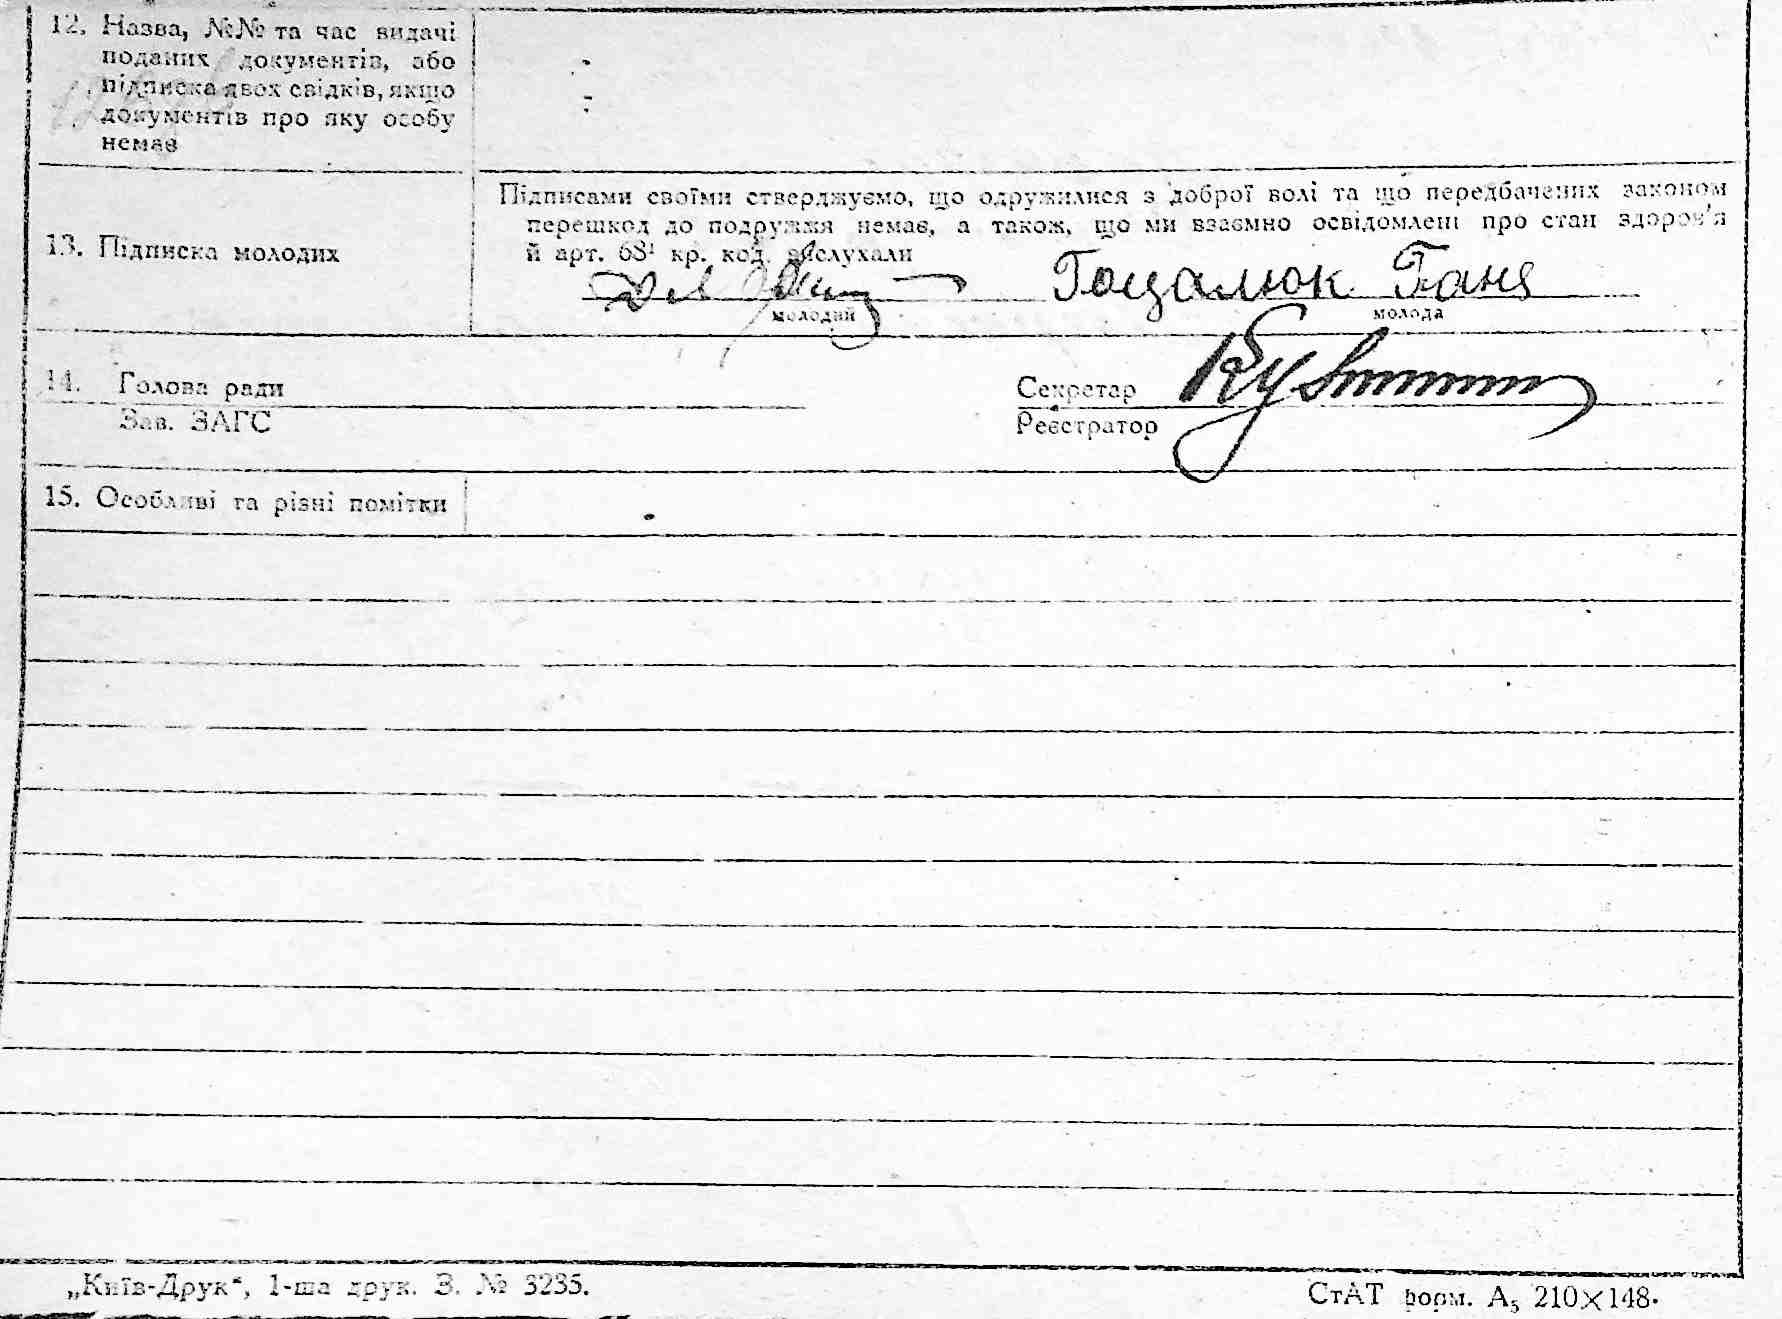 12. Назва, №№ та час видачі
поданих документів, або
підписка двох свідків, якщо
документів про яку особу
немає
Підписами своїми стверджуємо, що одружилися з доброї волі та що передбачених законом
перешкод до подружжя немає, а також, що ми взаємно освідомлені про стан здоров'я
13. Підписка молодих
й арт. 68¹ кр. код. вислухали
Гоцалюк Ганя
молодий молода
14. Голова ради Секретар
Зав. ЗАГС Реєстратор
15. Особливі та різні помітки
„Київ-Друк“, 1-ша друк. З. № 3235.
СтАТ форм. А₅ 210×148.